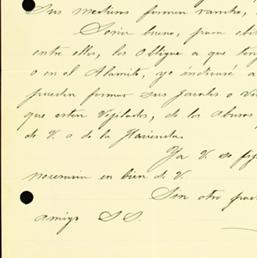 sus medieros forman rancho,
Seria bueno, para evi
entre ellos, los oblique a que ten
o en el Alamito, yo indicaré a
puedan formar sus jacales o
que esten vigilados, de los abusos
de V. o de la Hacienda.
Ya V. se fig
necesario en bien d. V.
Sin otro
amigo S.S.